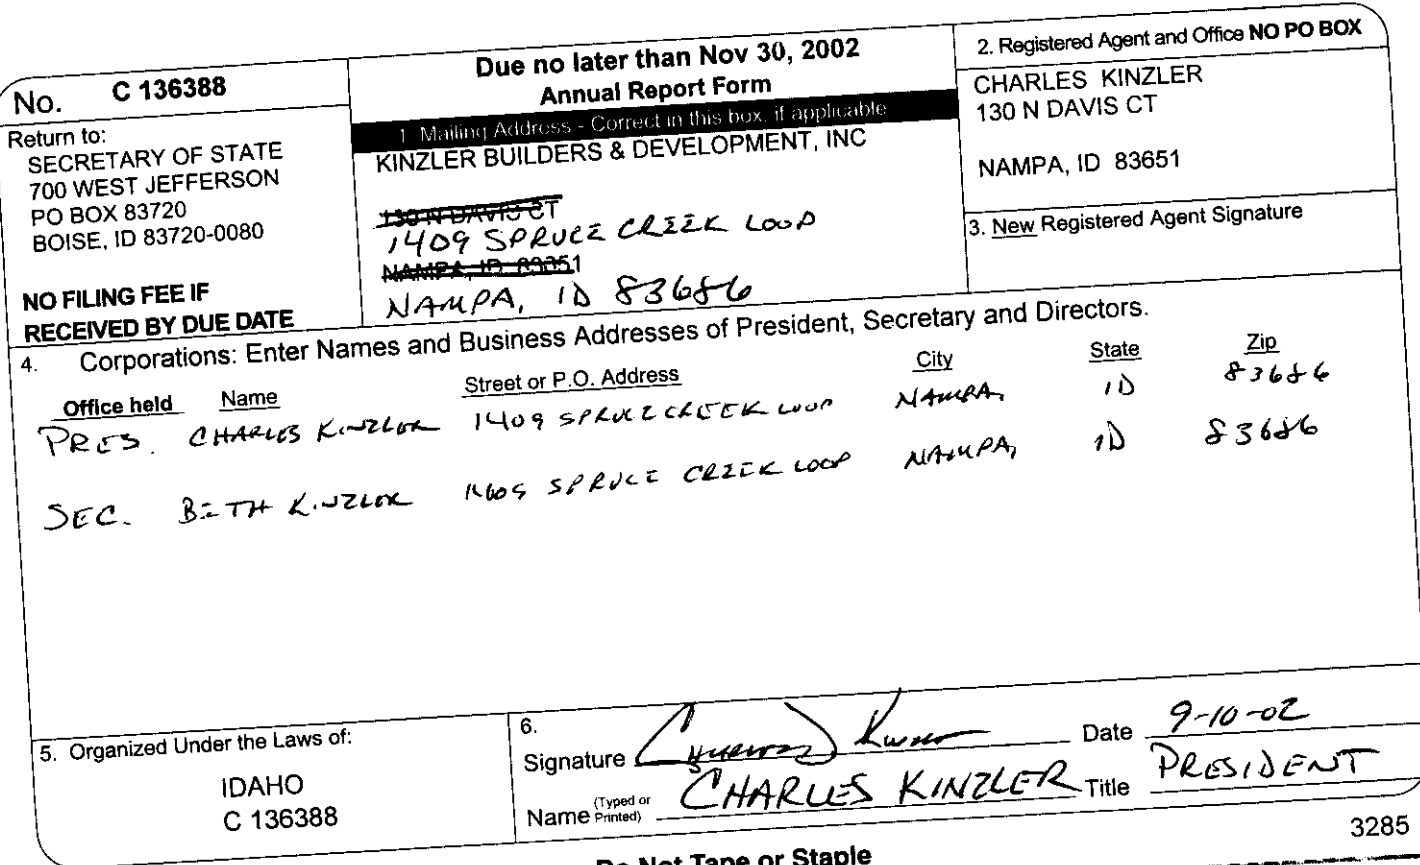 No. C 136388
Return to:
SECRETARY OF STATE
700 WEST JEFFERSON
PO BOX 83720
BOISE, ID 83720-0080
NO FILING FEE IF
RECEIVED BY DUE DATE
Due no later than Nov 30, 2002
Annual Report Form
1. Mailing Address - Correct in this box, if applicable
KINZLER BUILDERS & DEVELOPMENT, INC
130 N DAVIS CT
1409 SPRUCE CREEK LOOP
NAMPA, ID 83651
NAMPA, ID 83686
2. Registered Agent and Office NO PO BOX
CHARLES KINZLER
130 N DAVIS CT
NAMPA, ID 83651
3. New Registered Agent Signature
4. Corporations: Enter Names and Business Addresses of President, Secretary and Directors.
Office held Name Street or P.O. Address City State Zip
PRES. CHARLES KINZLER 1409 SPRUCE CREEK LOOP NAMPA, ID 83686
SEC. BETH KINZLER 1409 SPRUCE CREEK LOOP NAMPA, ID 83686
5. Organized Under the Laws of:
IDAHO
C 136388
6.
Signature Date 9-10-02
Name (Typed or Printed) CHARLES KINZLER Title PRESIDENT
3285
Do Not Tape or Staple